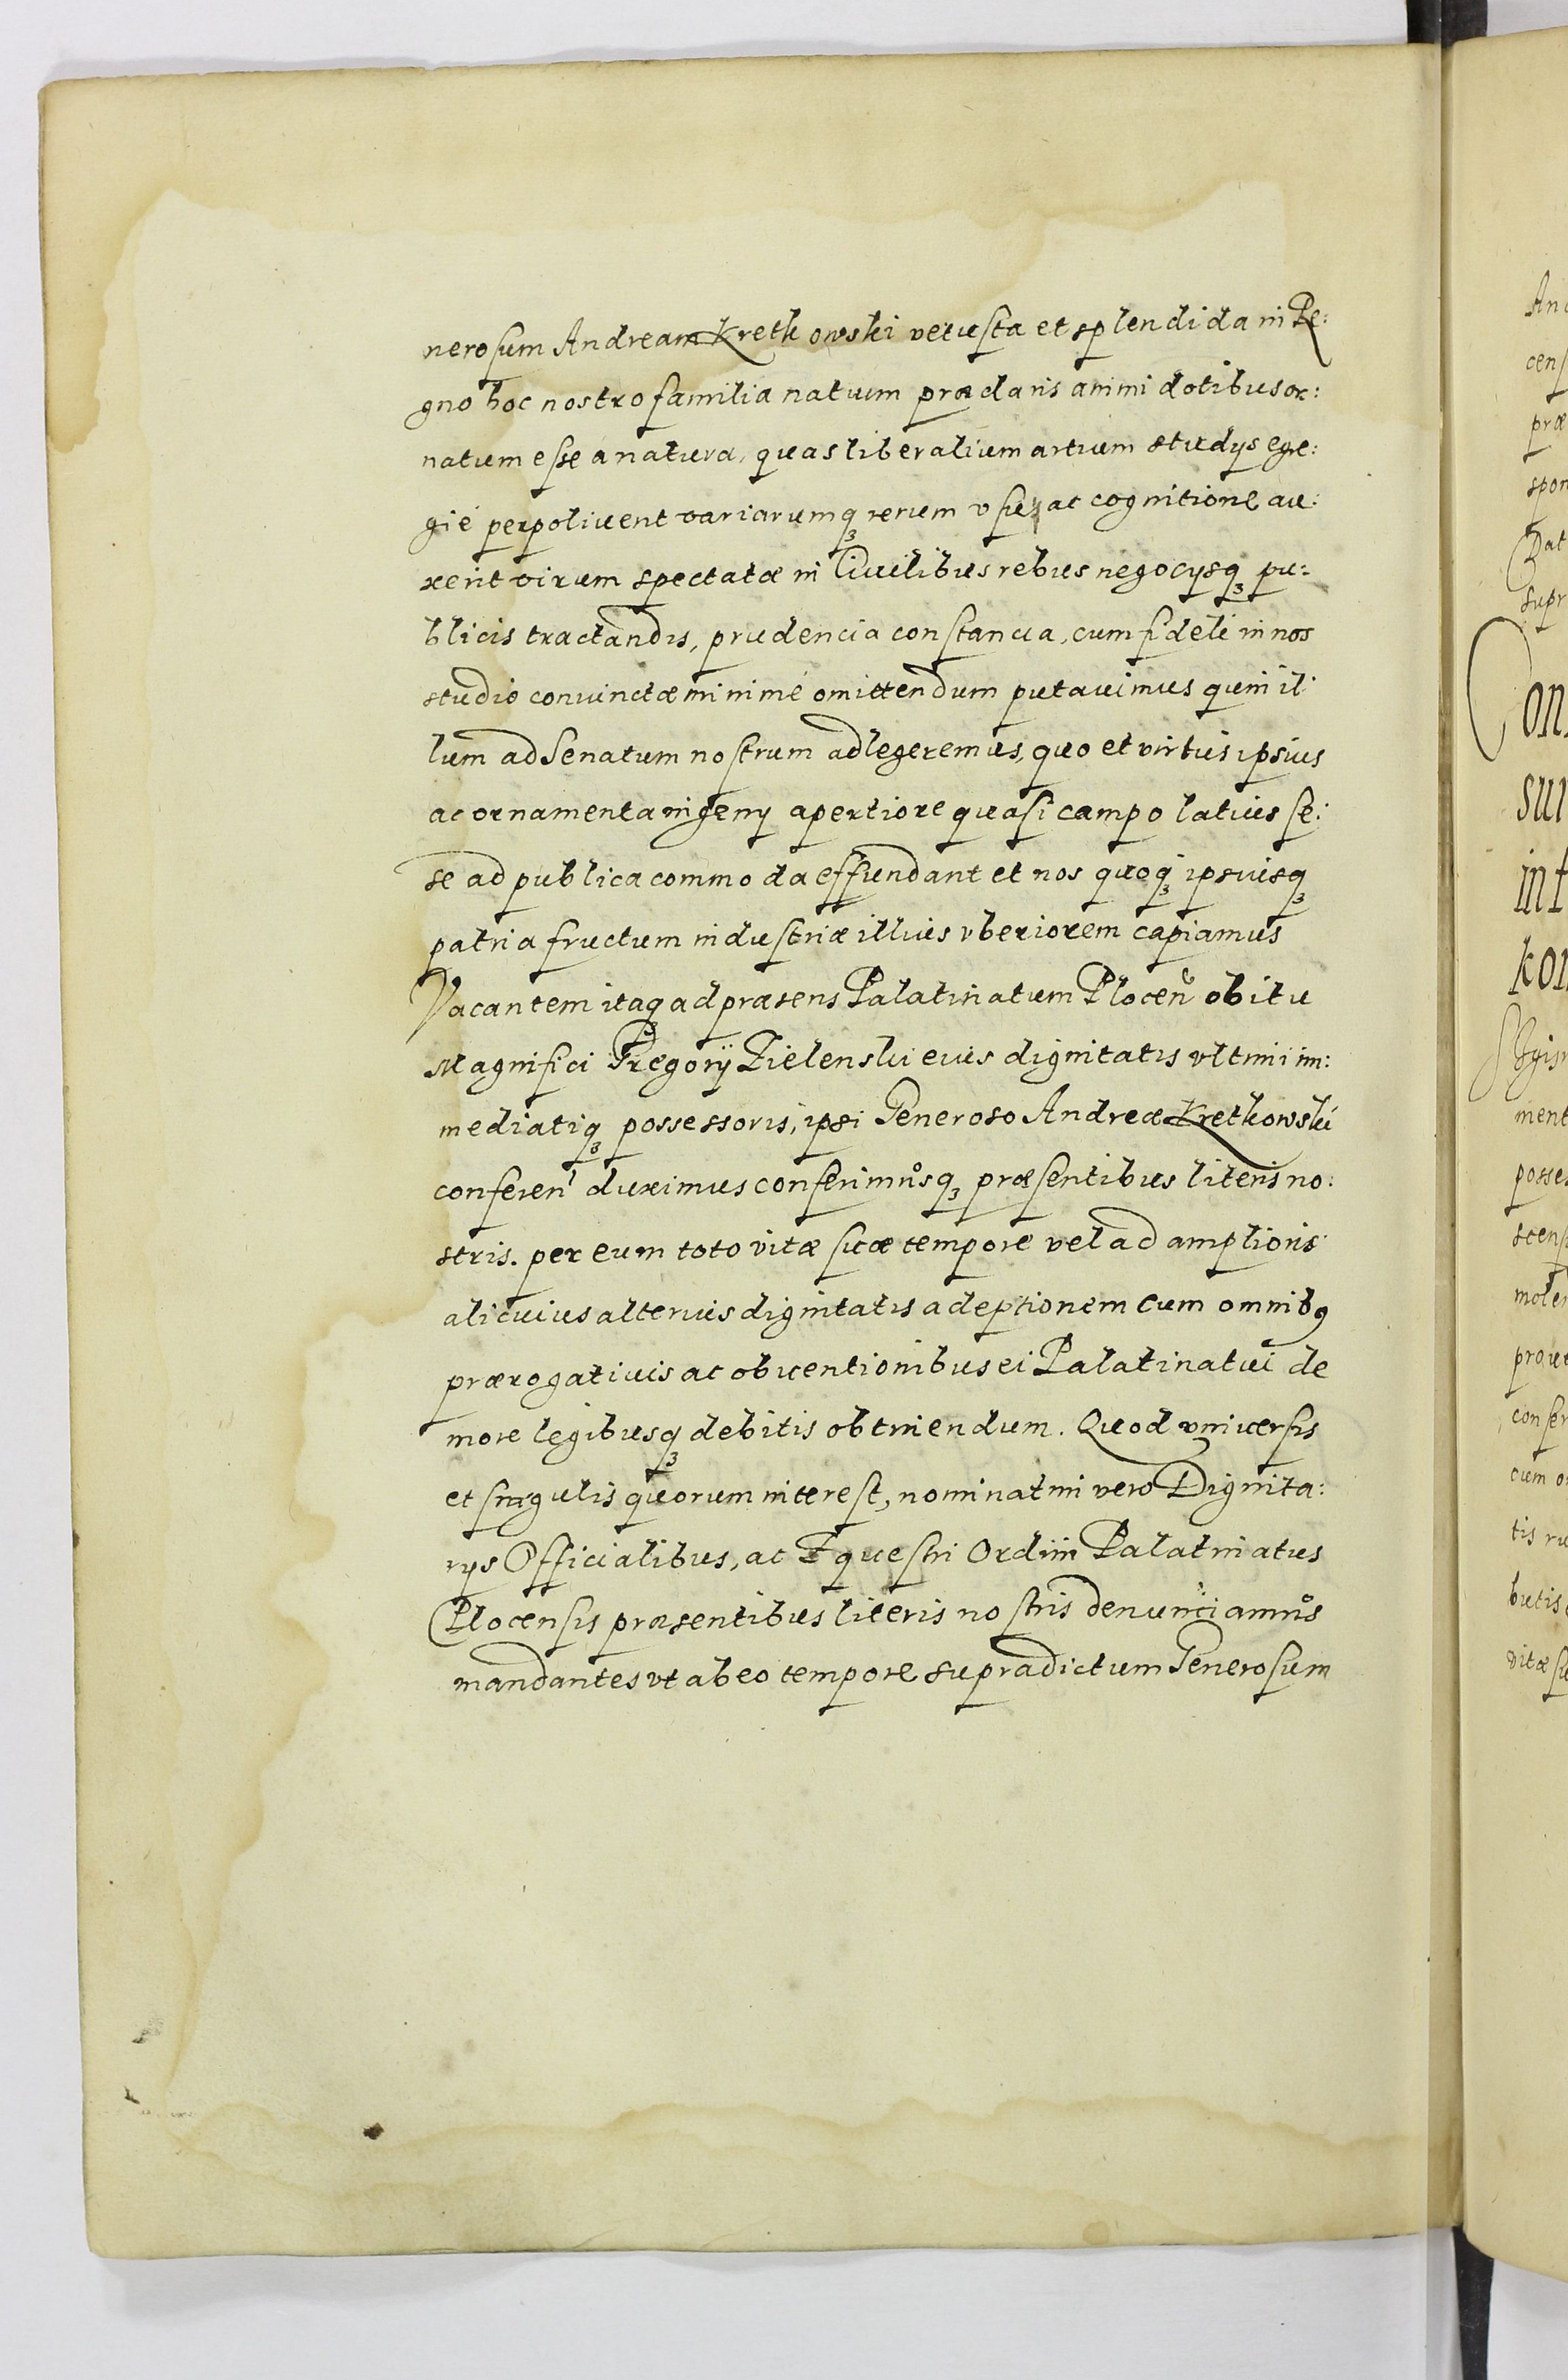 nerosum Andream Kretkowski vetusta et splendida in Re:
gno hoc nostro familia natum præclaris animi dotibus or:
natum esse a natura, quas liberalium artium studys egre:
gié perpoliverit variarumq₃ rerum vsu, ac cognitione au:
xerit virum spectatæ in Ciuilibus rebus negocysq₃ pu:
blicis tractandis, prudencia constancia, cum fideli in nos
studio conuinctæ minimé omittendum putauimus quin il:
lum ad Senatum nostrum adlegeremus, quo et virtus ipsius
ac ornamenta ingeny apertiore quasi campo latius se:
se ad publica commoda effundant et nos quoq₃ ipsiusq₃
patria fructum industriæ illius vberiorem capiamus
Vacantem itaq₃ ad præsens Palatinatum Plocen̄ obitu
Magnifici Gregorÿ Zielenski eius dignitatis vltimi im:
mediatiq₃ possessoris, ipsi Generoso Andreæ Kretkowski
conferen̄ duximus conferimusq₃ præsentibus literis no:
stris. per eum toto vitæ suæ tempore vel ad amplioris
alicuius alterius dignitatis adeptionem cum omnibꝰ
prærogatiuis ac obuentionibus ei Palatinatui de
more legibusq₃ debitis obtinendum. Quod vniuersis
et singulis quorum interest, nominatim vero Dignita:
rys Officialibus, ac Equestri Ordini Palatinatus
Plocensis præsentibus literis nostris denunciamus
mandantes vt ab eo tempore supradictum Generosum